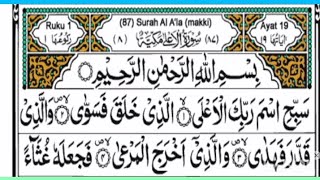 Ruku 1 (87) Surah Al A'la (makki) Ayat 19
رکوعها ١ (٨) سُوْرَةُ الْاَعْلٰى مَكِّيَّةٌ (٨٧) اٰیاتها ١٩
بِسْمِ اللّٰهِ الرَّحْمٰنِ الرَّحِيْمِ
سَبِّحِ اسْمَ رَبِّكَ الْاَعْلَى ۙ١ الَّذِيْ خَلَقَ فَسَوّٰى ۙ٢ وَالَّذِيْ
قَدَّرَ فَهَدٰى ۙ٣ وَالَّذِيْٓ اَخْرَجَ الْمَرْعٰى ۙ٤ فَجَعَلَهٗ غُثَآءً